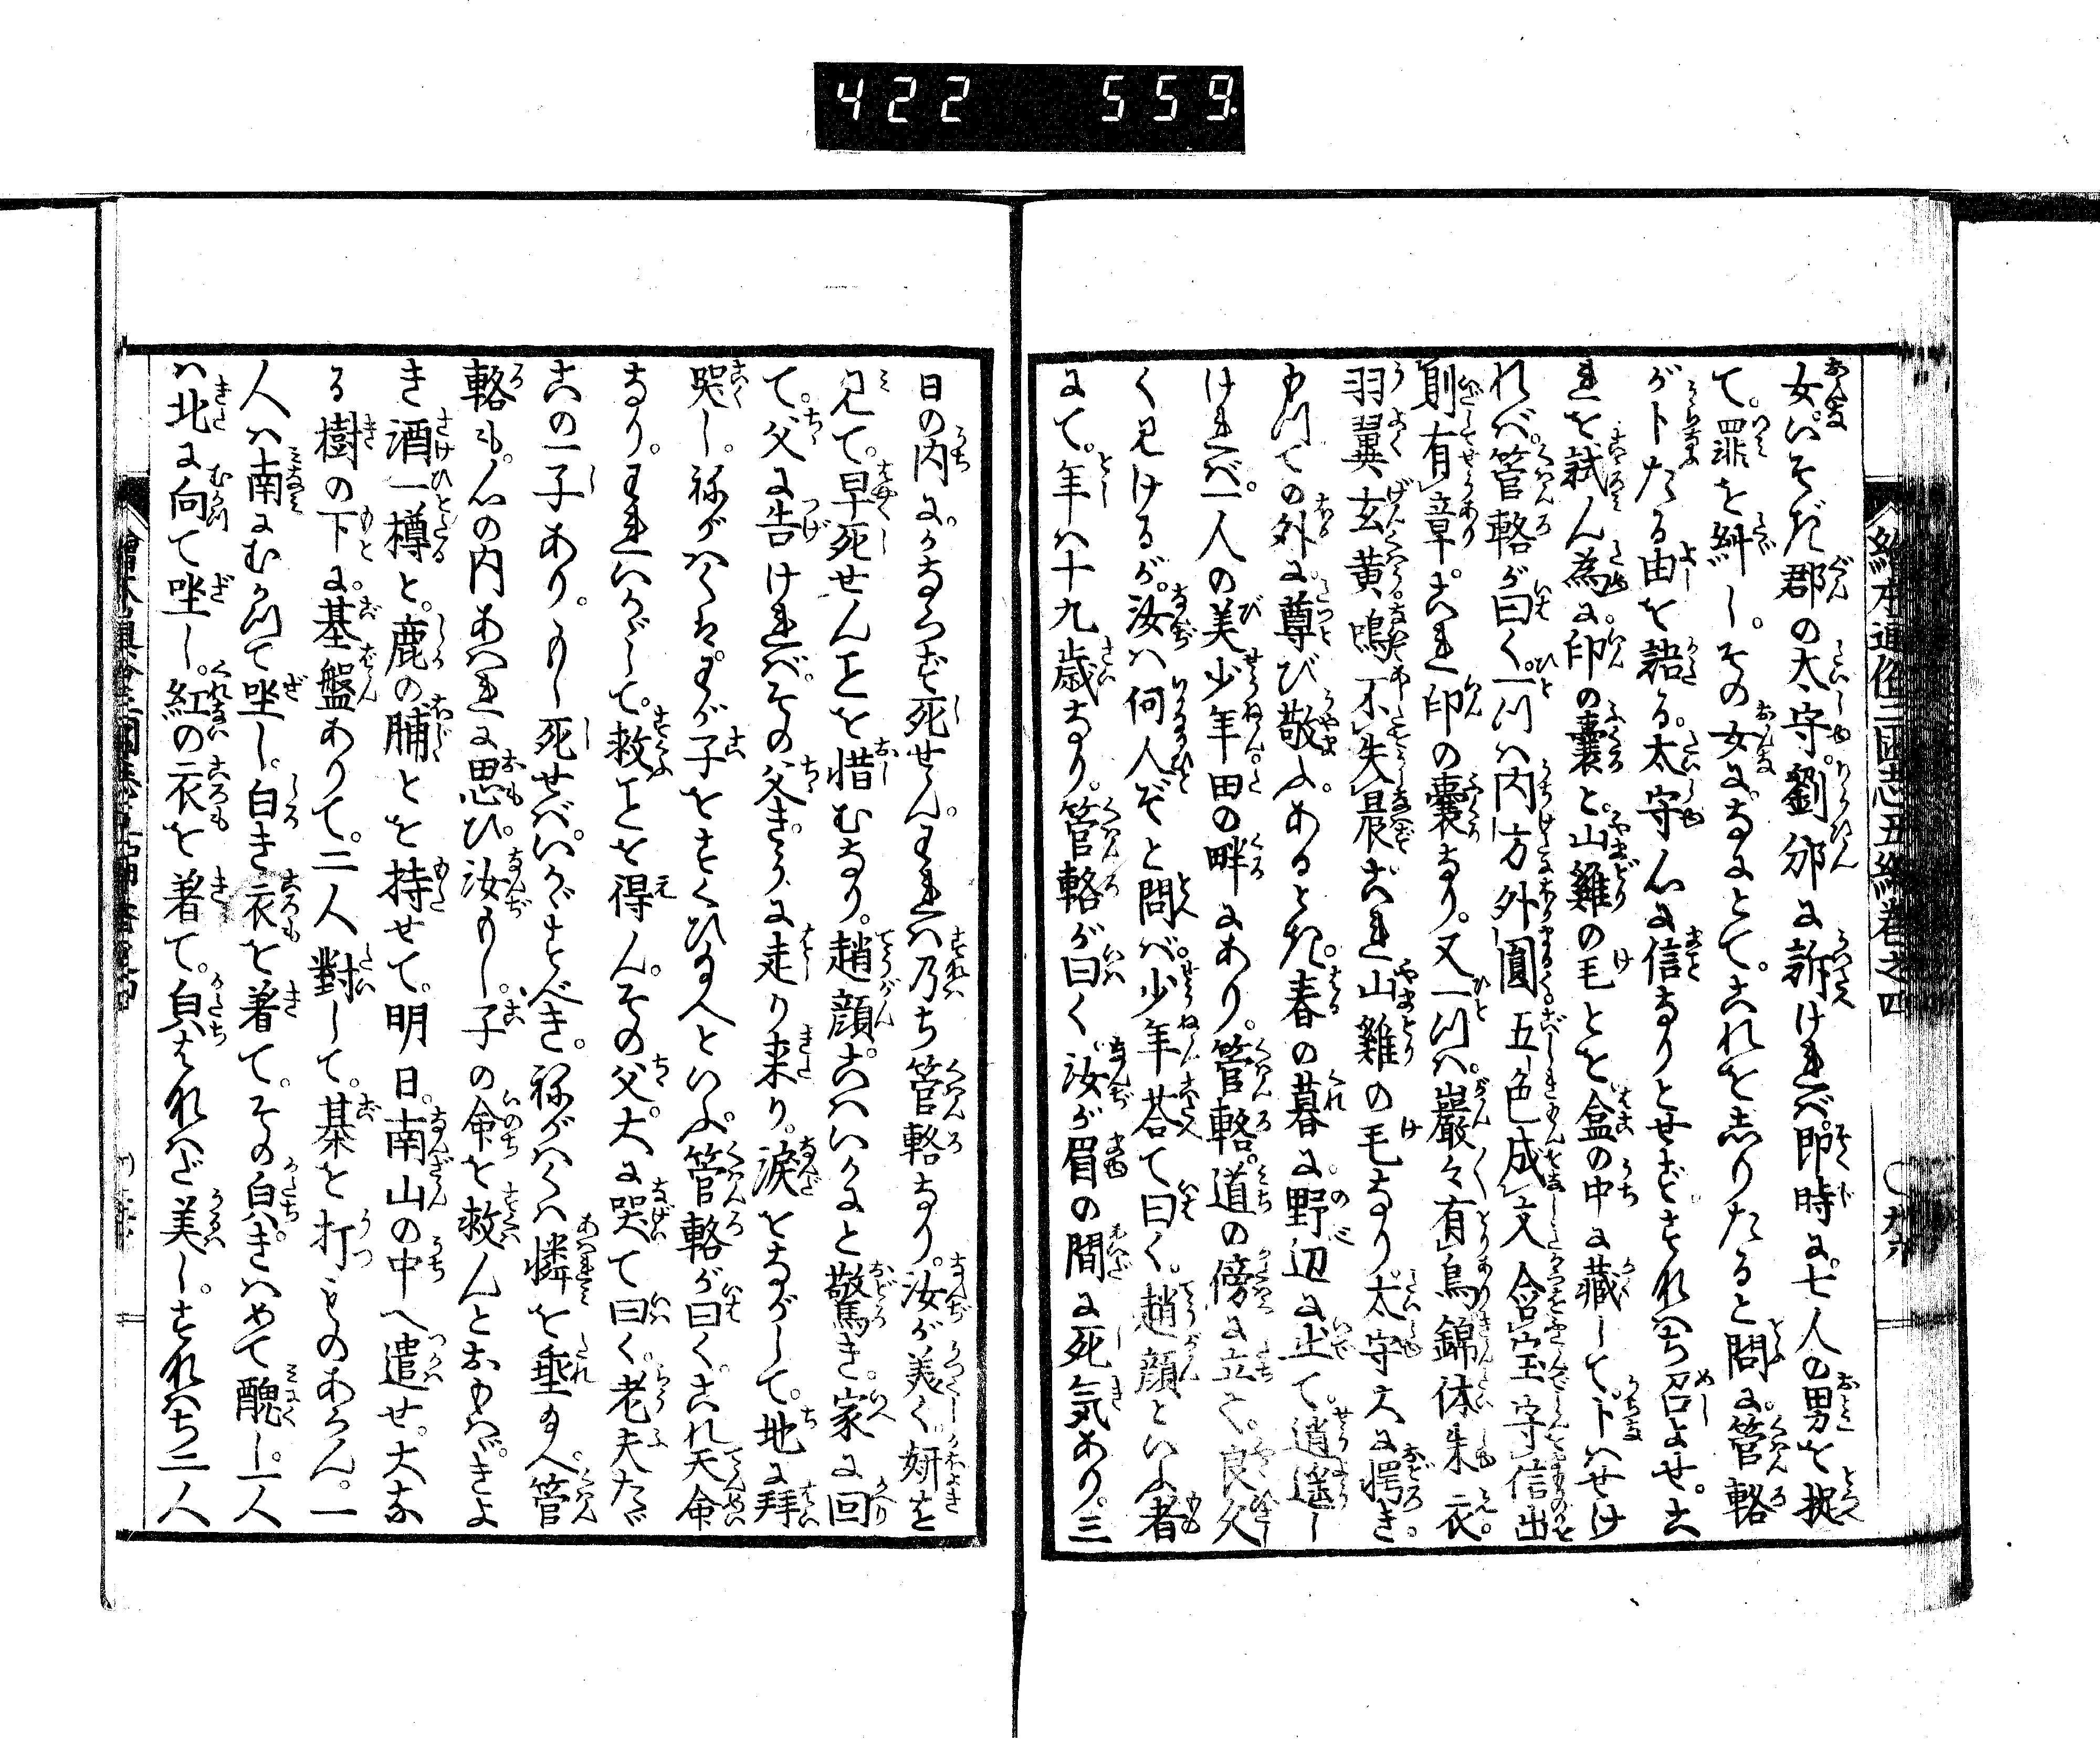 422 559
繪本通俗三國志五編巻之四
女いそぎ郡の太守劉邠に訴ければ。即時に。七人の男を捉
て。罪を糾し。その女に。なにとて。これを志りたると問に。管輅
が卜たる由を語る。太守心に信なりとせず。すなハち召よせ。こ
れを試ん為に。印の嚢と。山雞の毛とを盒の中に藏して。卜ハせけ
れバ。管輅が曰く。一ツハ内方外圓五色成文含宝守信出
則有章。これ印の嚢なり。又一ツハ。巖々有鳥錦体朱衣。
羽翼玄黄鳴不失晨。これ山雞の毛なり。太守大に愕き。
かつての外に尊び敬ふ。あるとき。春の暮に野辺に出て。逍遥し
けれバ。一人の美少年田の畔にあり。管輅。道の傍に立て。良久し
く見けるが。汝ハ何人ぞと問バ。少年荅て曰く。趙顔といふ者
にて。年ハ十九歳なり。管輅が曰く。汝が眉の間に死気あり。三
日の内に。かならず死せん。われハ乃ち管輅なり。汝が美く妍を
見て。早死せんことを惜むなり。趙顔。こハいかにと驚き。家に回り
て。父に告けれバ。その父きうに走り来り。涙をながして。地に拜
哭し。ねがハくは。わが子をすくひ給へといふ。管輅が曰く。これ天命
なり。われいかがして。救ことを得ん。その父。大に哭て曰く。老夫たゞ
この一子あり。もし死せバ。いかがすべき。ねがハくハ憐を垂給へ。管
輅も。心の内あハれに思ひ。汝もし。子の命を救んとおもハゞ。きよ
き酒一樽と。鹿の脯とを持せて。明日。南山の中へ遣せ。大な
る樹の下に。碁盤ありて。二人對して。碁を打ものあらん。一
人ハ南にむかつて坐し。白き衣を着て。その㒵きハめて醜し。一人
ハ北に向て坐し。紅の衣を着て。㒵はなハだ美し。すなハち二人